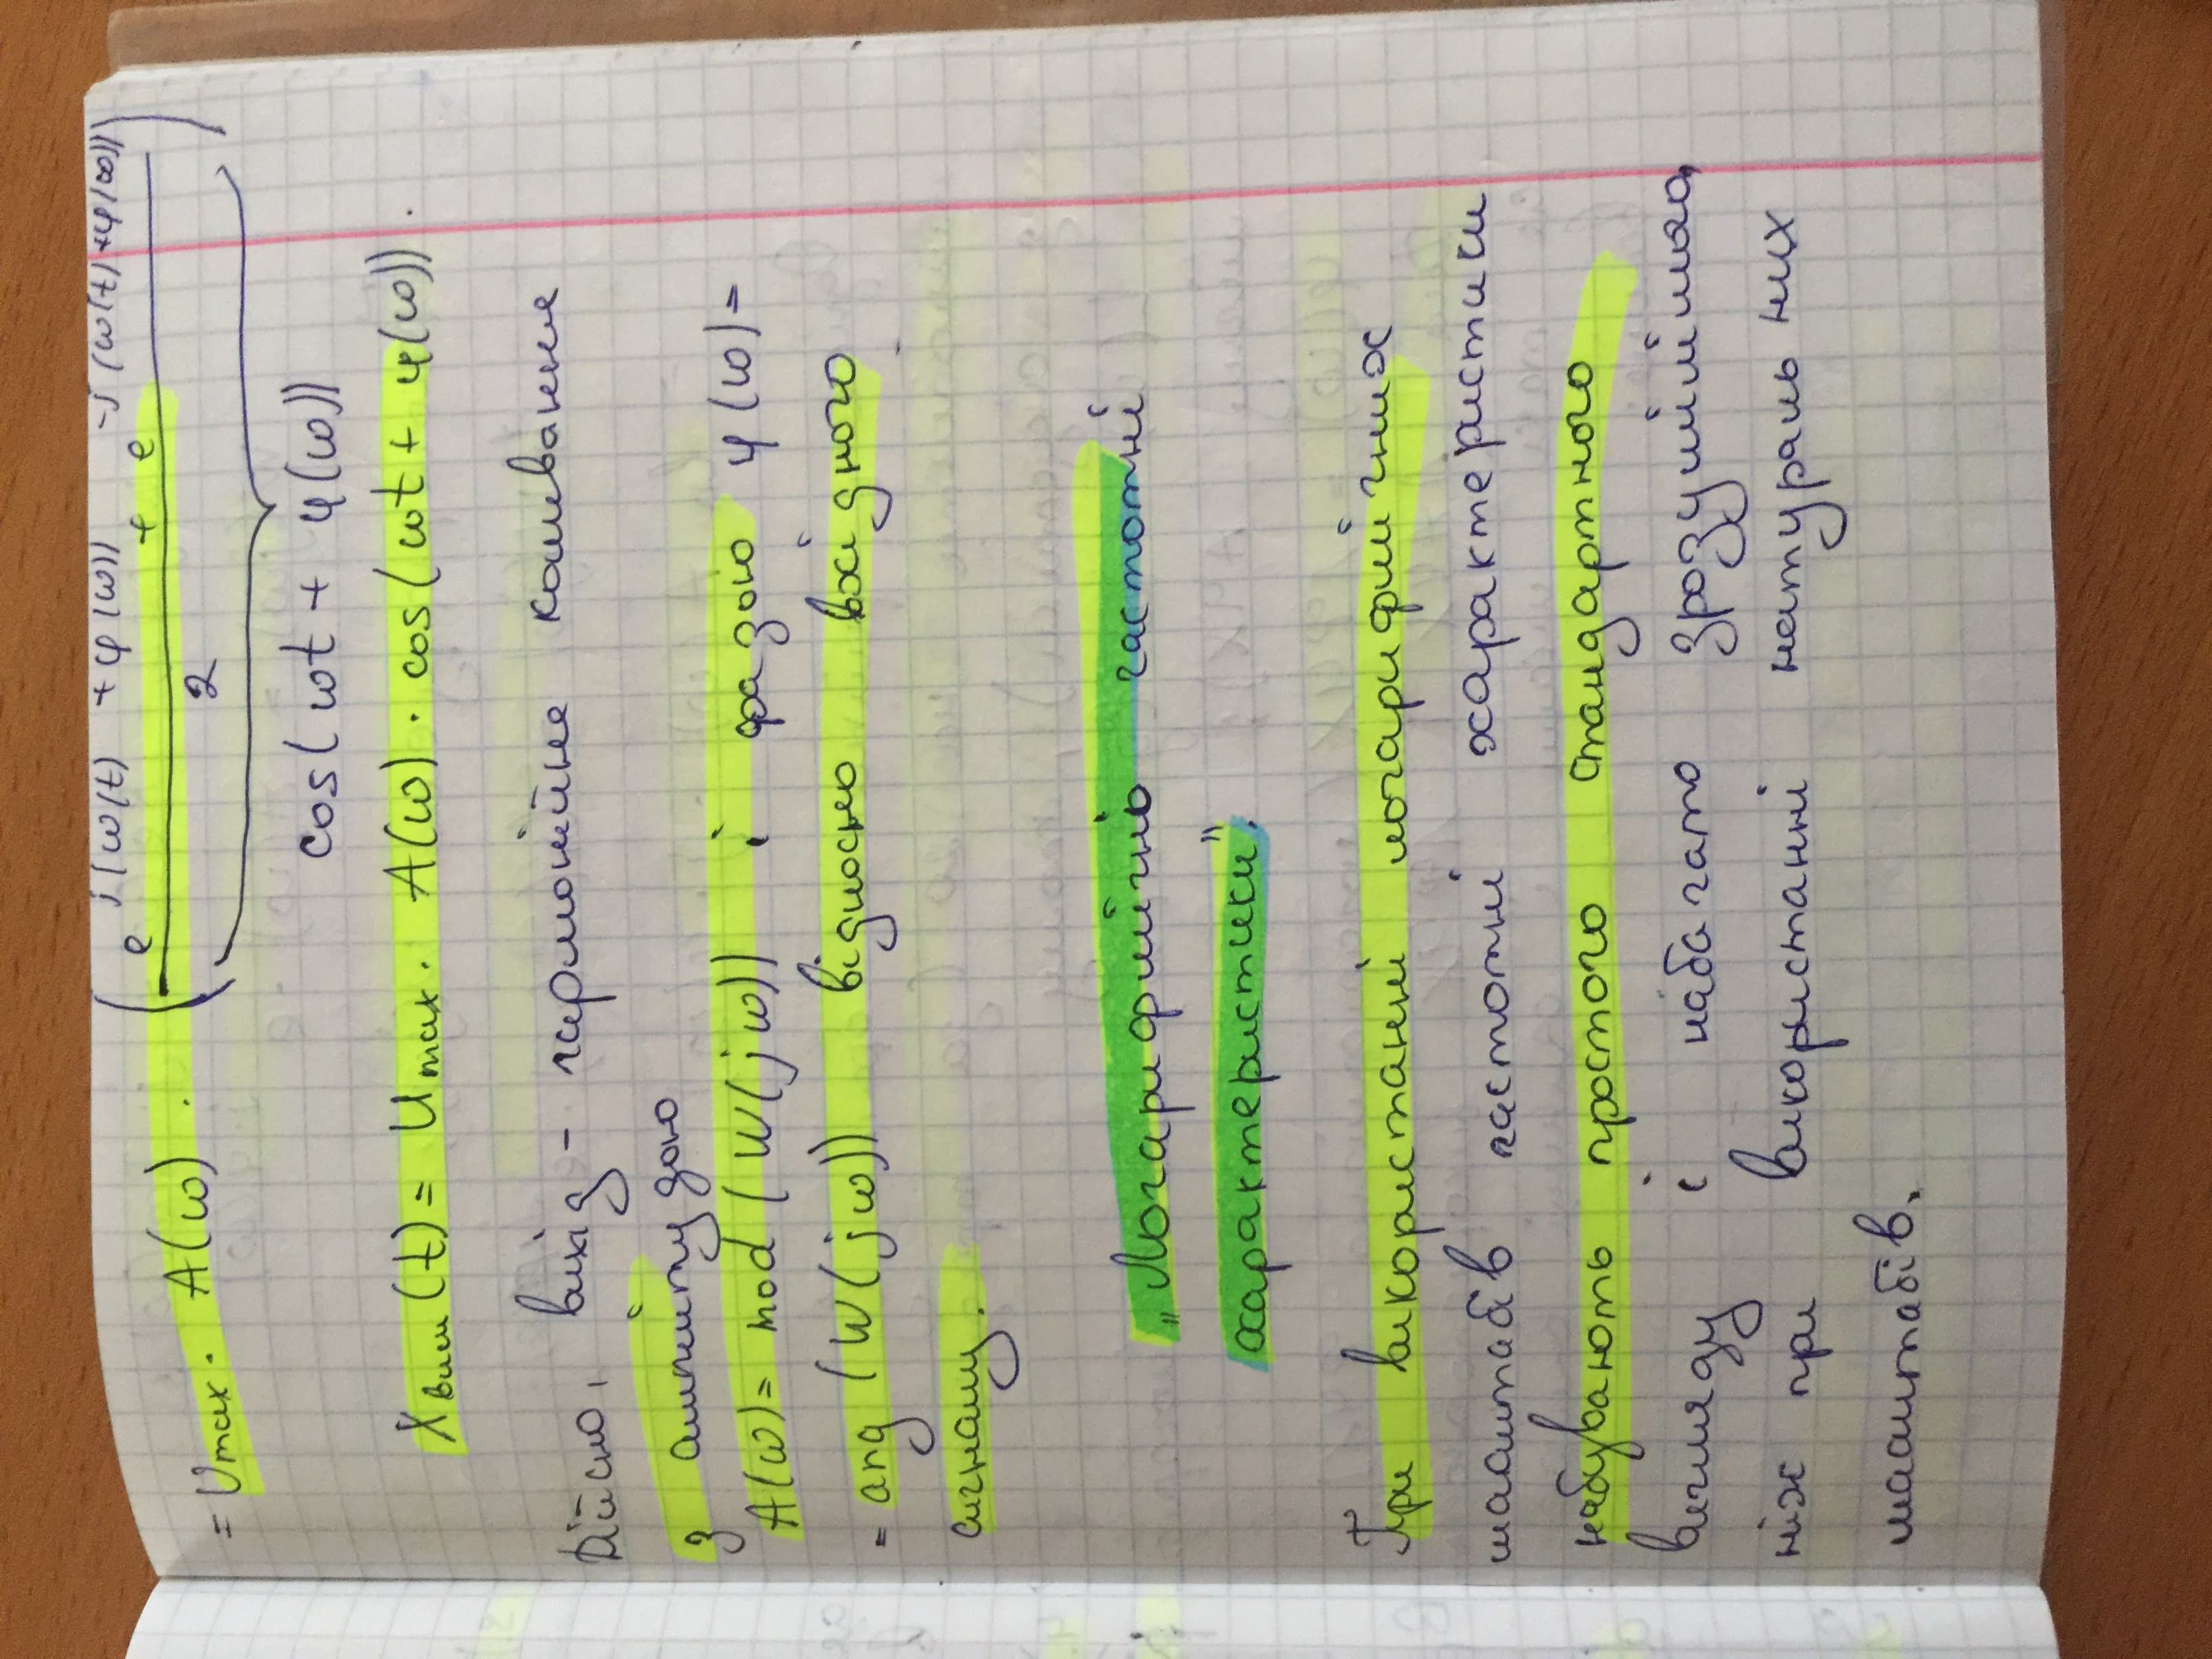 = Umax · A(ω) · ( (e^{j(ω(t) + φ(ω))} + e^{-j(ω(t)+φ(ω))}) / 2 )
cos(ωt + φ(ω))
Xвих(t) = Umax · A(ω) · cos(ωt + φ(ω)).
Дійсно, вихід – гармонійне коливання
з амплітудою
A(ω) = mod (W(jω)) і фазою φ(ω) =
= ang (W(jω)) відносно вхідного
сигналу.
„Логарифмічні частотні
характеристики".
При використанні логарифмічних
масштабів частотні характеристики
набувають простого стандартного
вигляду і набагато зрозумілішого,
ніж при використанні натуральних
масштабів.